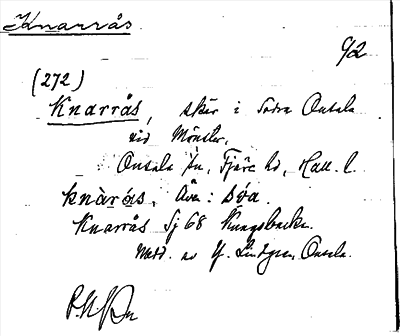 Knarrås
92
(272)
Knarrås, skär i Södra Onsala
vid Mönster,
Onsala sn, Fjäre hd, Hall. l.
knàrás, Åva: såa.
Knarrås Sj 68 Kungsbacka.
Medd. av Y. Lindgren, Onsala.